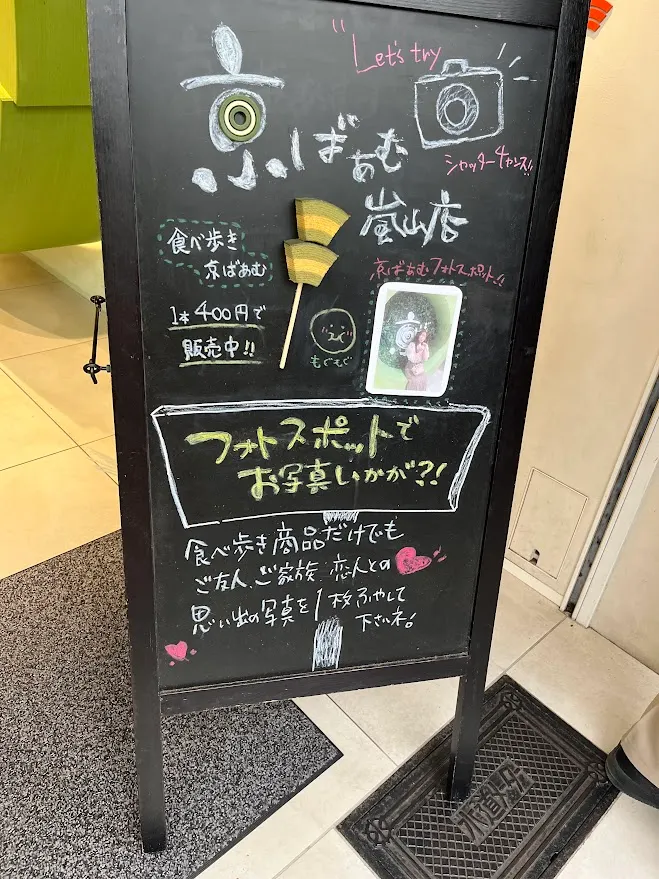 "Let's try
京ばぁむ
シャッターチャンス!!
嵐山店
食べ歩き
京ばあむ
京ばあむフォトスポット!!
1本400円で
販売中!!
もぐもぐ
フォトスポットで
お写真いかが?!
食べ歩き商品だけでも
ご友人、ご家族、恋人との
思い出の写真を1枚ふやして
下さいネ。
水道メーター